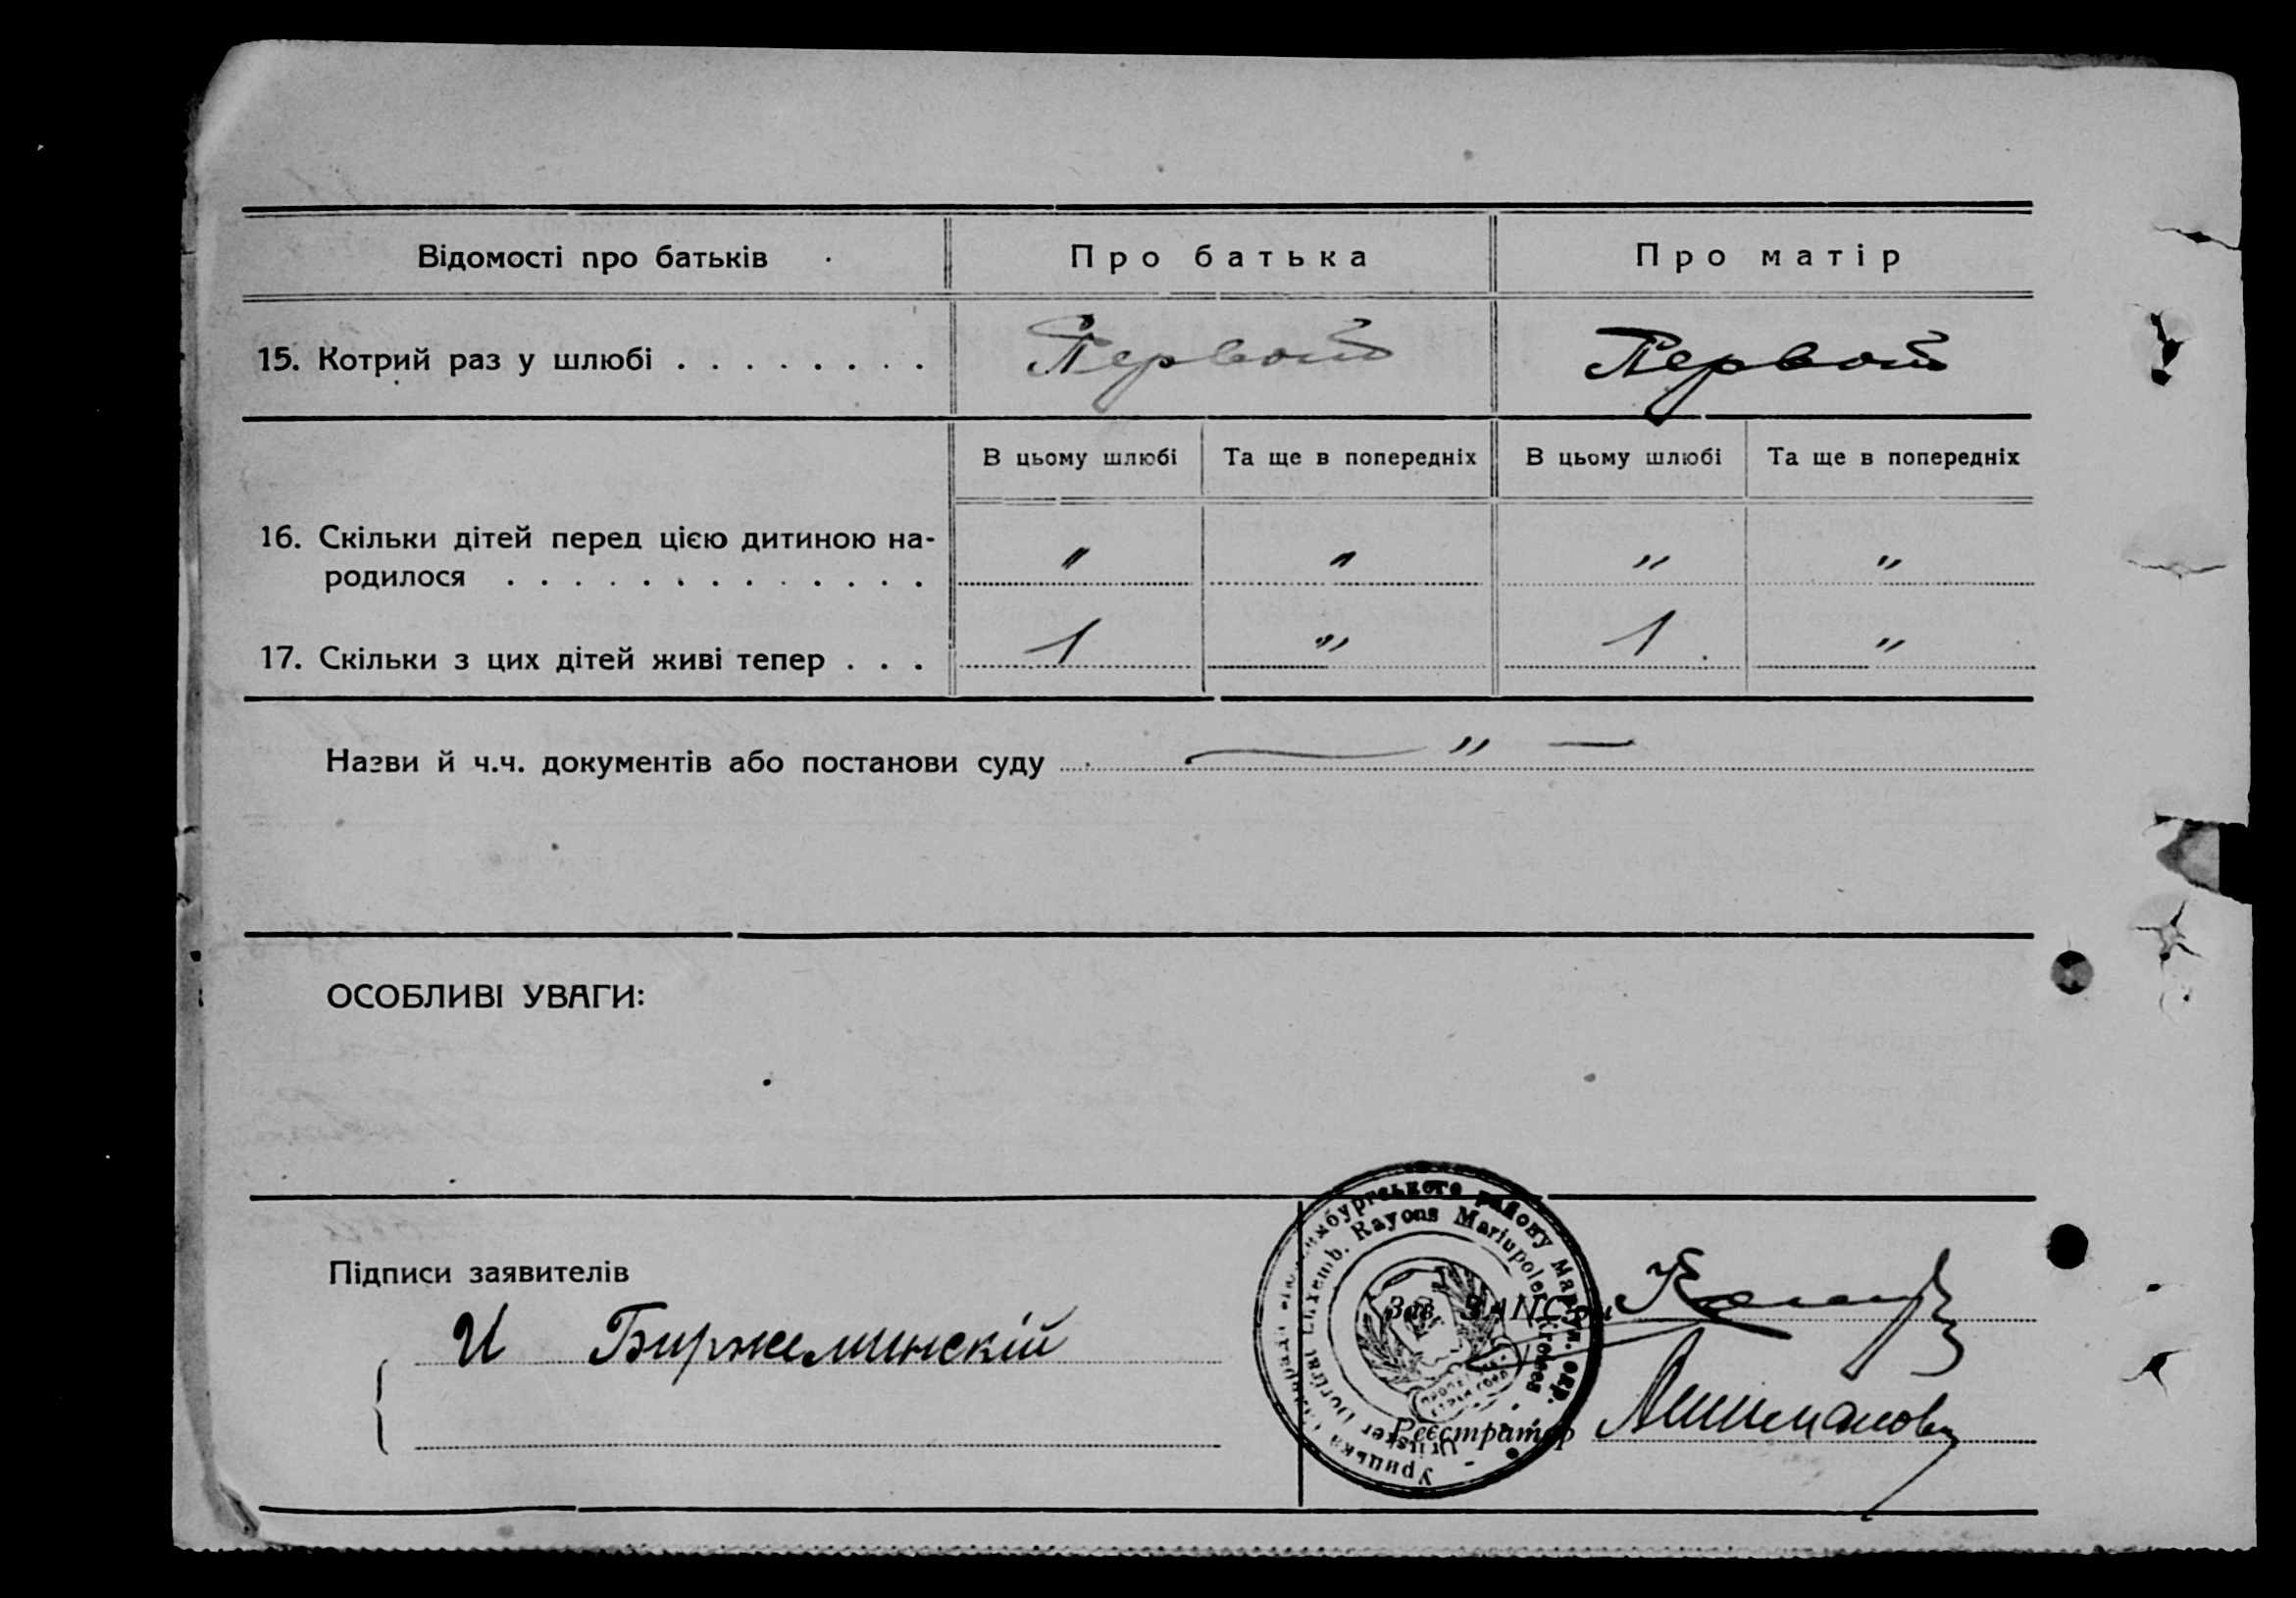 Відомості про батьків
Про батька
Про матір
15. Котрий раз у шлюбі . . . . . . . .
Первой
Первой
В цьому шлюбі
Та ще в попередніх
В цьому шлюбі
Та ще в попередніх
16. Скільки дітей перед цією дитиною на-
родилося . . . . . . . . . . . . .
"
"
"
"
17. Скільки з цих дітей живі тепер . . .
1
"
1
"
Назви й ч.ч. документів або постанови суду
— " —
ОСОБЛИВІ УВАГИ:
Підписи заявителів
И Биржеминскій
Зав. ЗАЦСом
Реєстратор
Урицька
бургського району Маріуп. окр.
Luxemb. Rayons Mariupoler Kreises
Uritzker Dorfrat